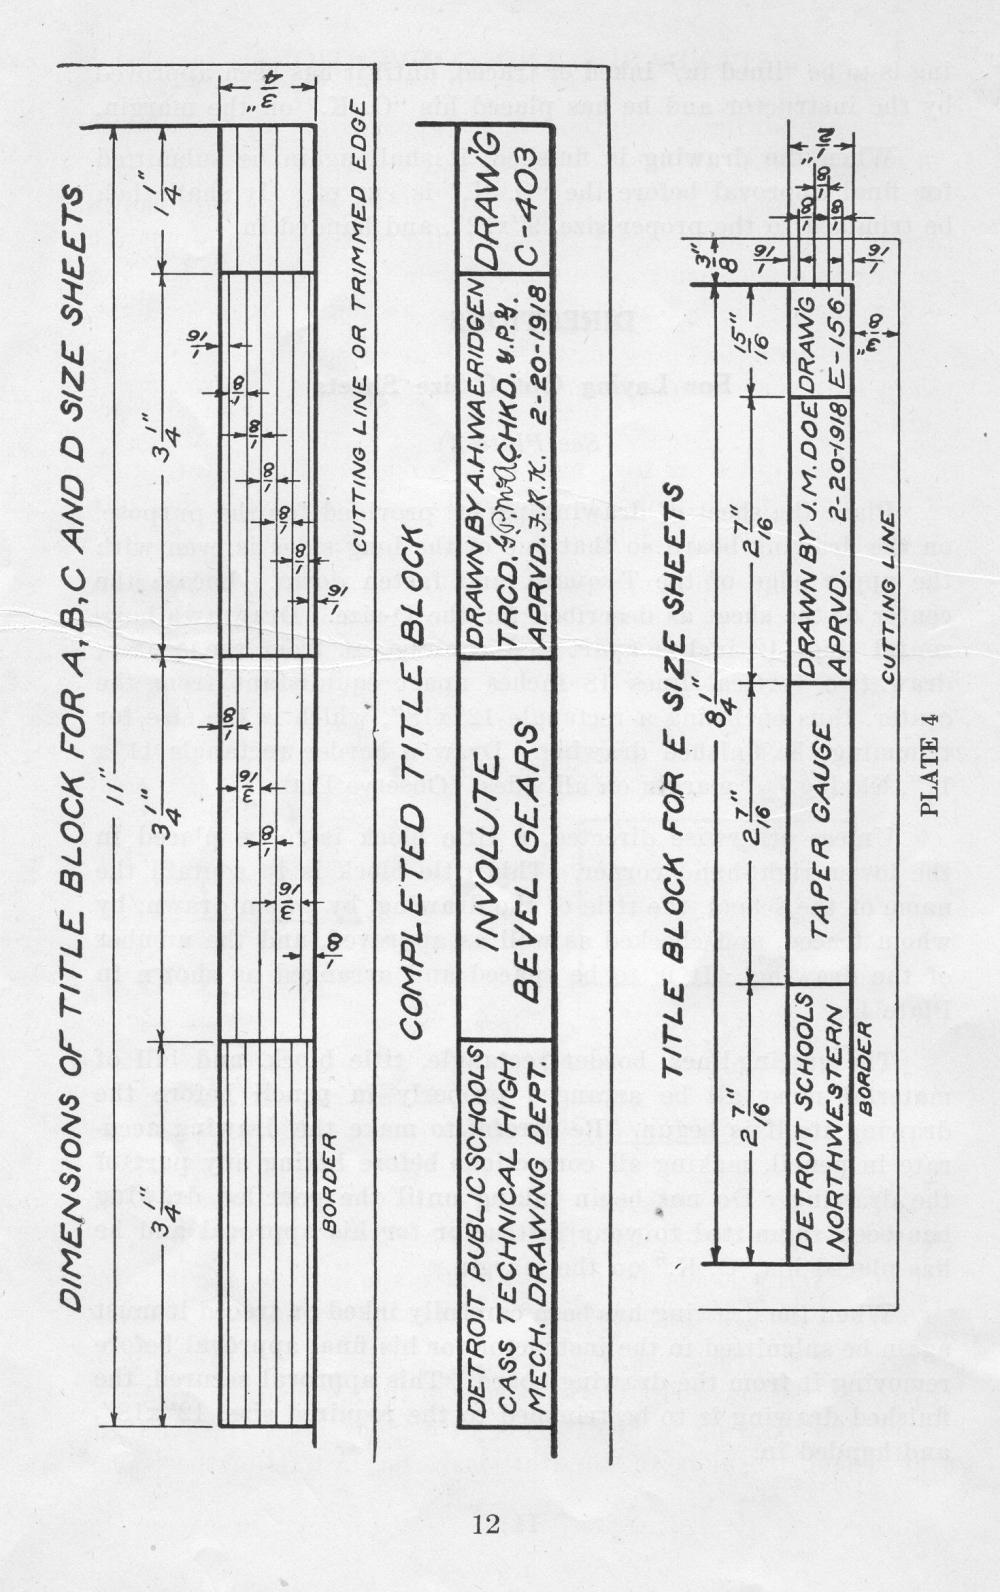 DIMENSIONS OF TITLE BLOCK FOR A, B, C AND D SIZE SHEETS
11"
3 1/4" 3 1/4" 3 1/4" 1 1/4"
3/4
1/8 3/16 1/8 3/16 1/8
1/16 1/8 1/8 1/8 1/8 1/8 1/16
BORDER
CUTTING LINE OR TRIMMED EDGE
COMPLETED TITLE BLOCK
DETROIT PUBLIC SCHOOLS
CASS TECHNICAL HIGH
MECH. DRAWING DEPT.
INVOLUTE
BEVEL GEARS
DRAWN BY A.H. WALRIDGEN
TRCD. CHKD. Y.P.Y.
APRVD. F.R.K. 2-20-1918
DRAW'G
C-403
TITLE BLOCK FOR E SIZE SHEETS
8 1/4" 3/8"
2 7/16" 2 7/16" 2 7/16" 15/16"
DETROIT SCHOOLS
NORTHWESTERN
TAPER GAUGE
DRAWN BY M. DOE
APRVD. 2-20-1918
DRAWG
E-156
1/16 1/8 1/8 1/8 1/16 1/2"
3/8"
BORDER
CUTTING LINE
PLATE 4
12